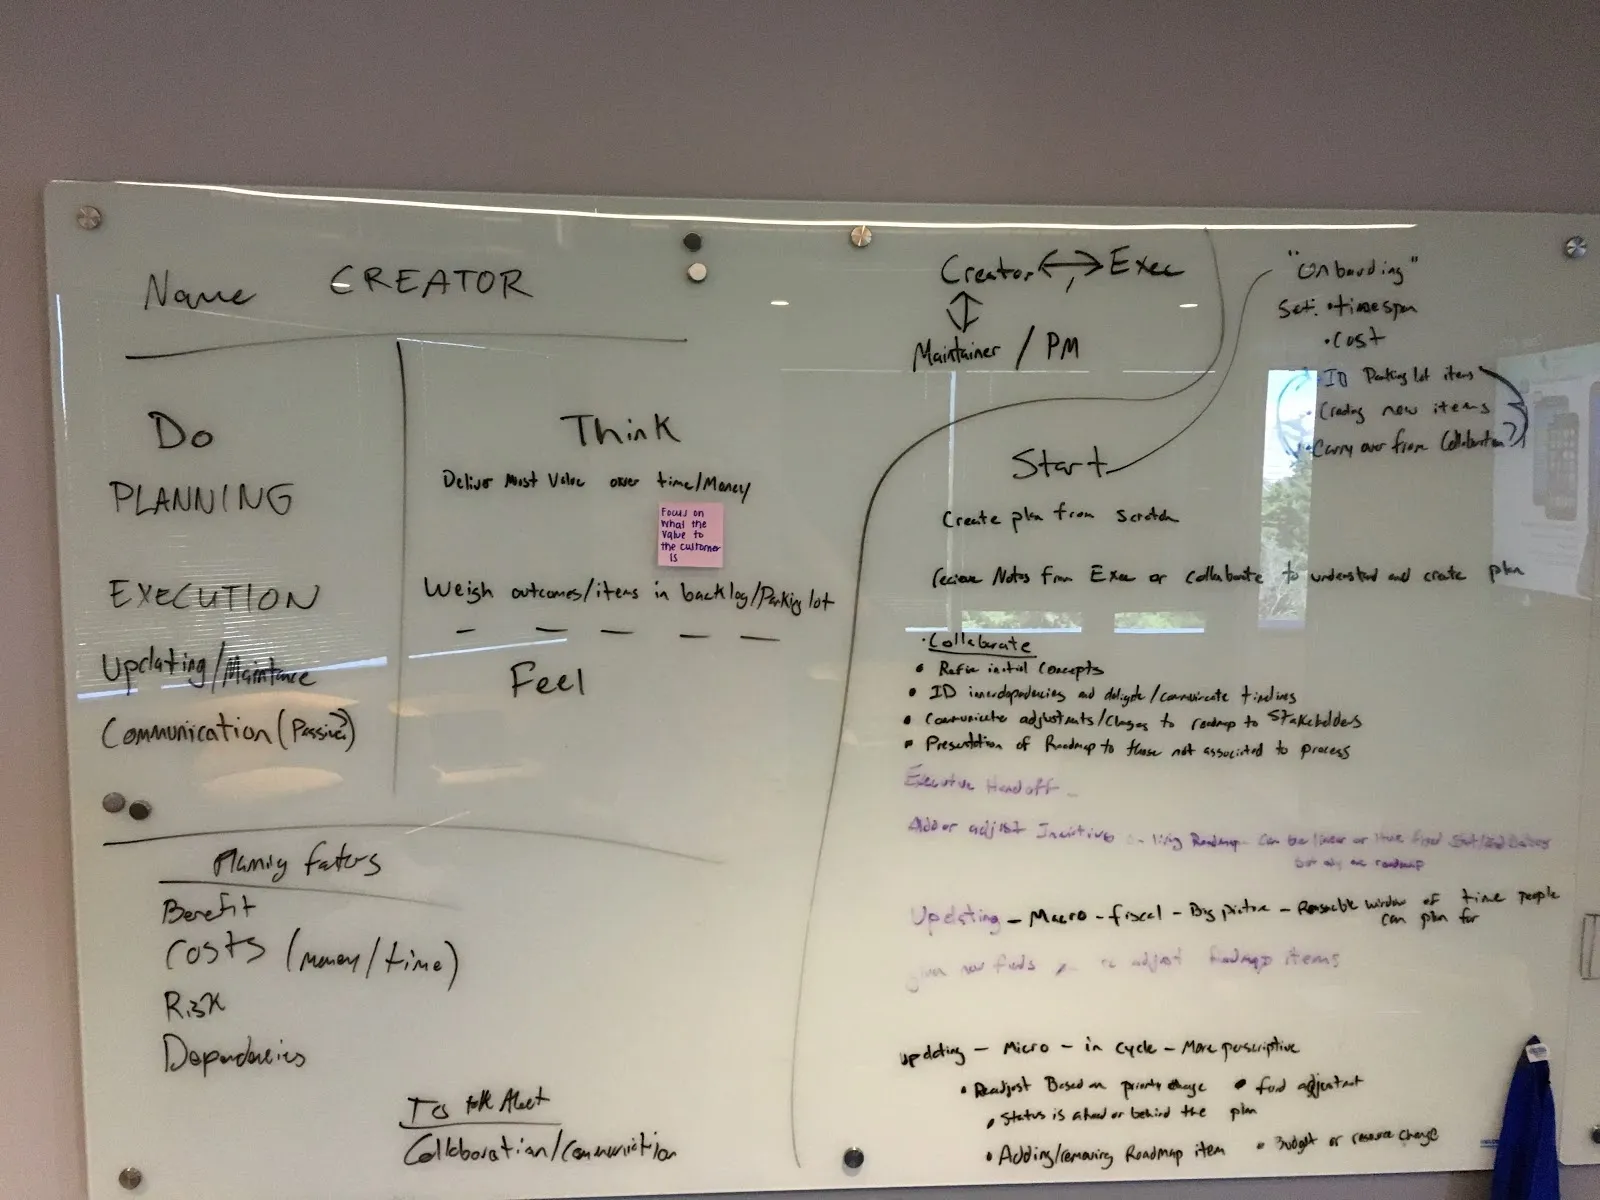 Name CREATOR
Do
PLANNING
EXECUTION
Updating/Maintance
Communication (Passive?)
Think
Deliver Most Value over time/Money
Focus on
what the
value to
the customer
is
Weigh outcomes/items in backlog/Parking lot
Feel
Planing factors
Benefit
Costs (money/time)
Risk
Dependencies
To talk About
Collaboration/Communiction
Creator ↔ Exec
Maintainer / PM
"Onboarding"
Set: • timespan
• Cost
• ID Parking lot items
• Creating new items
• Carry over from Collaboration?
Start
Create plan from scratch
recieve Notes from Exec or collaborate to understand and create plan
• Collaborate
• Refine initial Concepts
• ID interdependencies and deligate/communicate timelines
• Communicate adjustments/Changes to roadmap to Stakeholders
• Presentation of Roadmap to those not associated to process
Executive Handoff -
Add or adjust living Roadmap can be linear or have fixed
but only one roadmap
Updating - Macro - fiscal - Big picture - Reasonable window of time people
can plan for
given new funds re adjust Roadmap items
updating - Micro - in cycle - More perscriptive
• Readjust Based on priority change • fund adjustment
• Status is ahead or behind the plan
• Adding/removing Roadmap item • Budget or resource change